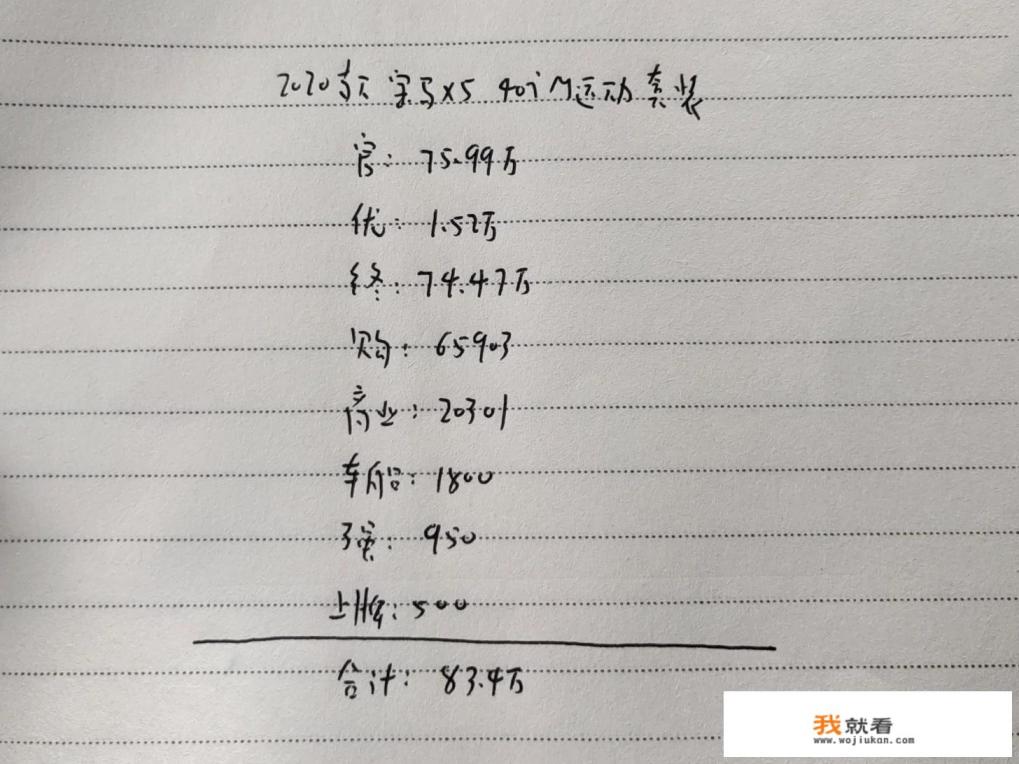 2020款 宝马X5 40i M运动套装
官: 75.99万
优: 1.52万
终: 74.47万
购: 65903
商业: 20301
车船: 1800
强: 950
上牌: 500
合计: 83.4万
我就看
www.wojiukan.com